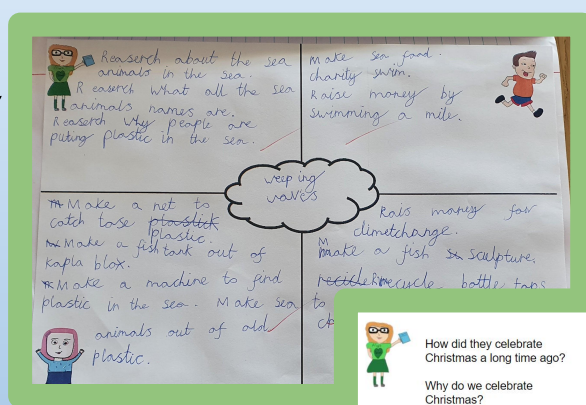 Reaserch about the sea
animals in the sea.
Reaserch what all the sea
animals names are.
Reaserch why people are
puting plastic in the sea.
Make sea food.
charity swim.
Raise money by
swimming a mile.
weeping
waves
Make a net to
catch tose plastick
plastic.
Make a fishtank out of
kapla blox.
Make a machine to find
plastic in the sea. Make sea
animals out of old
plastic.
Rais money for
climetchange.
Make a fish sculpture.
recicle Recycle bottle taps
to
How did they celebrate
Christmas a long time ago?
Why do we celebrate
Christmas?